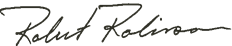 Robert Robinson